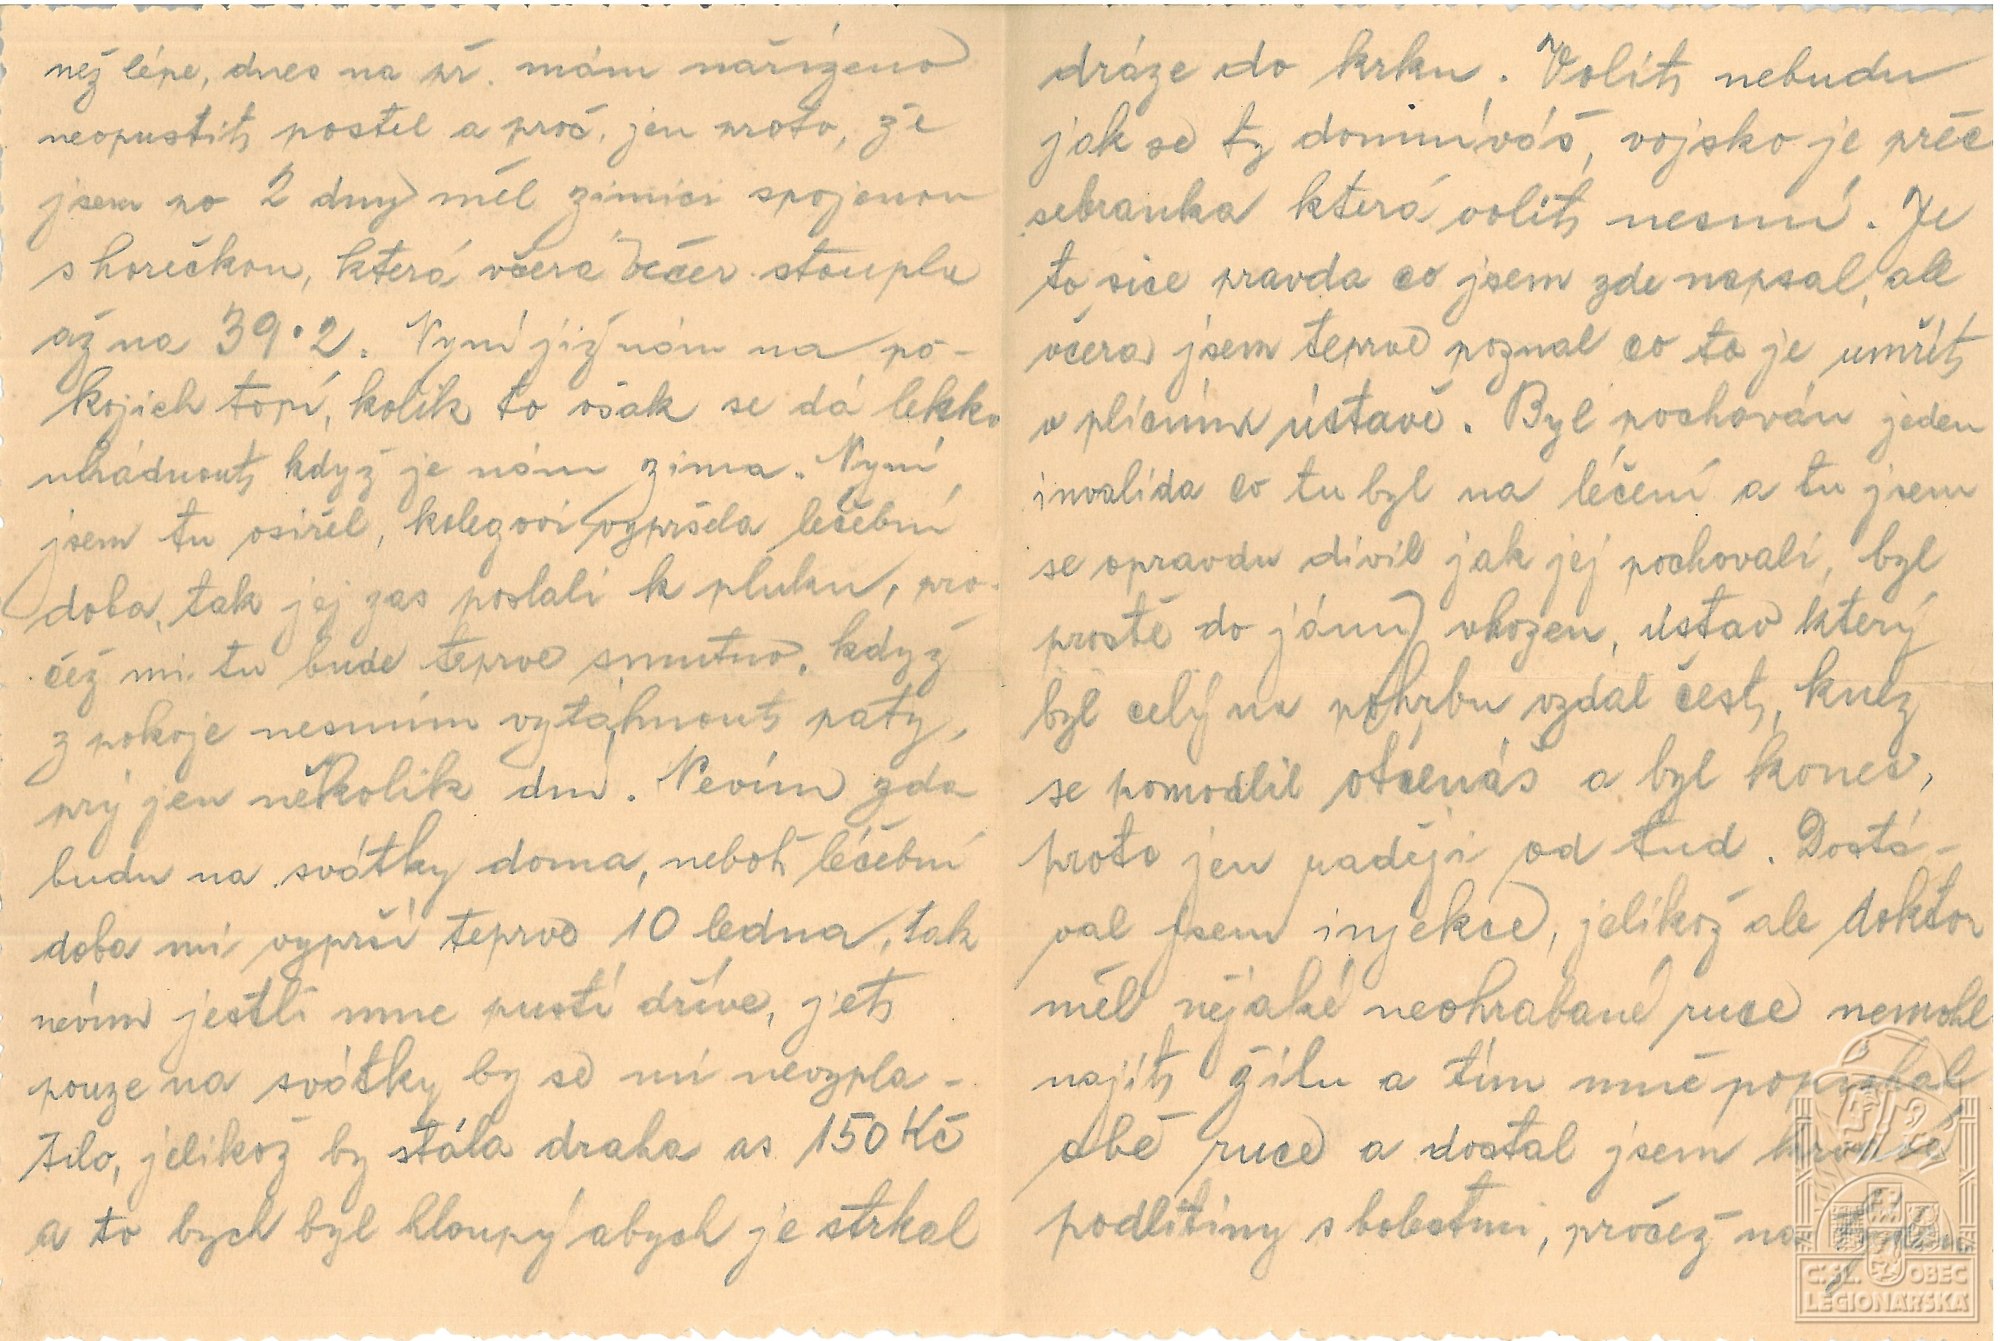 než lépe, dnes na př. mám nařízeno
neopustiti postel a proč, jen proto, že
jsem po 2 dny měl zimici spojenou
s horečkou, která včera večer stoupla
až na 39·2. Nyní již nám na po-
kojich topí, kolik to však se dá lehko
uhádnouti když je nám zima. Nyní
jsem tu osiřel, kolegovi vypršela léčební
doba, tak jej zas poslali k pluku, pro-
čež mi tu bude teprve smutno, když
z pokoje nesmím vytáhnouti paty,
prý jen několik dní. Nevím zda
budu na svátky doma, neboť léčební
doba mi vyprší teprve 10 ledna, tak
nevím jestli mne pustí dříve, jeti
pouze na svátky by se mi nevypla-
tilo, jelikož by stála draha as 150 Kč
a to bych byl hloupý abych je strkal
dráze do krku. Voliti nebudu
jak se ty domníváš, vojsko je přec
sebranka která voliti nesmí. Je
to sice pravda co jsem zde napsal, ale
včera jsem teprve poznal co to je umříti
v plicním ústavě. Byl pochován jeden
invalida co tu byl na léčení a tu jsem
se opravdu divil jak jej pochovali, byl
prostě do jámy vhozen, ústav který
byl celý na pohřbu vzdal čest, kněz
se pomodlil otčenáš a byl konec,
proto jen raději od tud. Dostá-
val jsem injekce, jelikož ale doktor
měl nějaké neohrabané ruce nemohl
najíti žílu a tím mně popíchal
obě ruce a dostal jsem krvavé
podlitiny s bolestmi, pročež na
C.SL. OBEC
LEGIONÁŘSKÁ